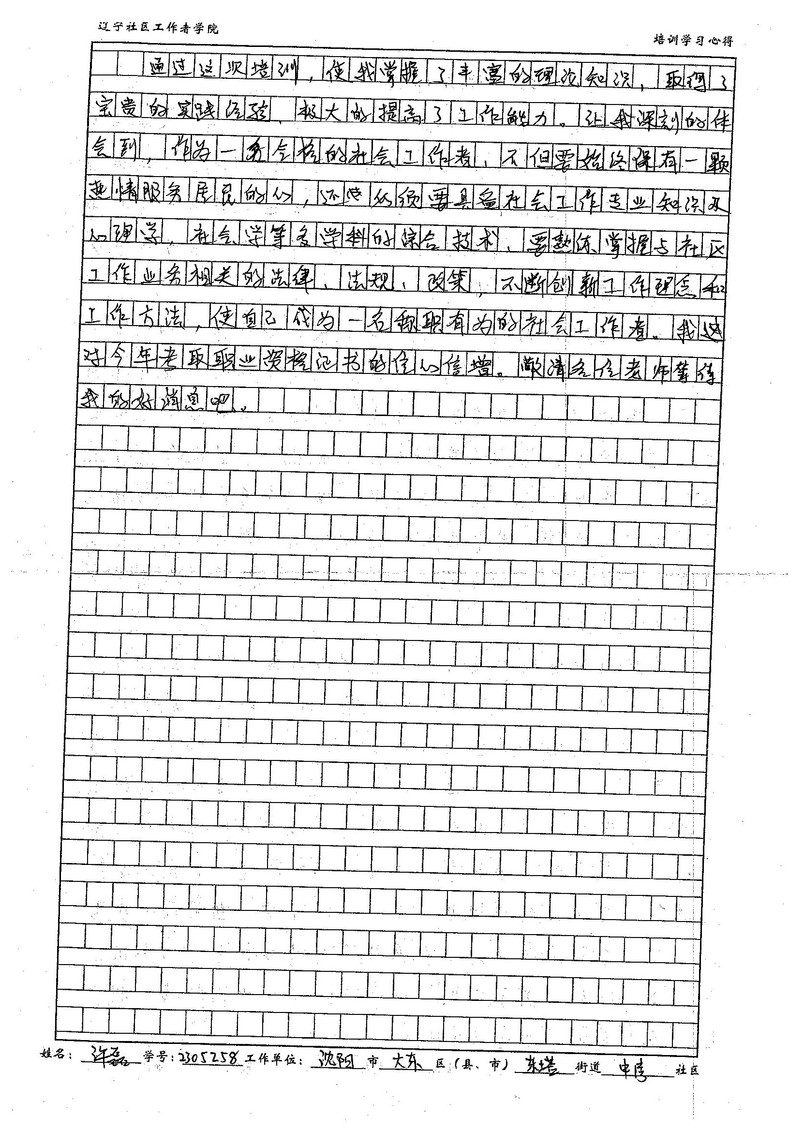 辽宁社区工作者学院
培训学习心得
通过这次培训，使我掌握了丰富的理论知识，取得了
宝贵的实践经验，极大的提高了工作能力。让我深刻的体
会到，作为一名合格的社会工作者，不但要始终保有一颗
热情服务居民的心，还必须要具备社会工作专业知识及
心理学，社会学等多学科的综合技术，要熟练掌握与社区
工作业务相关的法律、法规、政策，不断创新工作理念和
工作方法，使自己成为一名称职有为的社会工作者。我也
对今年考取职业资格证书的信心倍增。敬请各位老师等待
我的好消息吧。
姓名：许磊 学号：2305258 工作单位：沈阳 市 大东 区（县、市）东塔 街道 中 社区